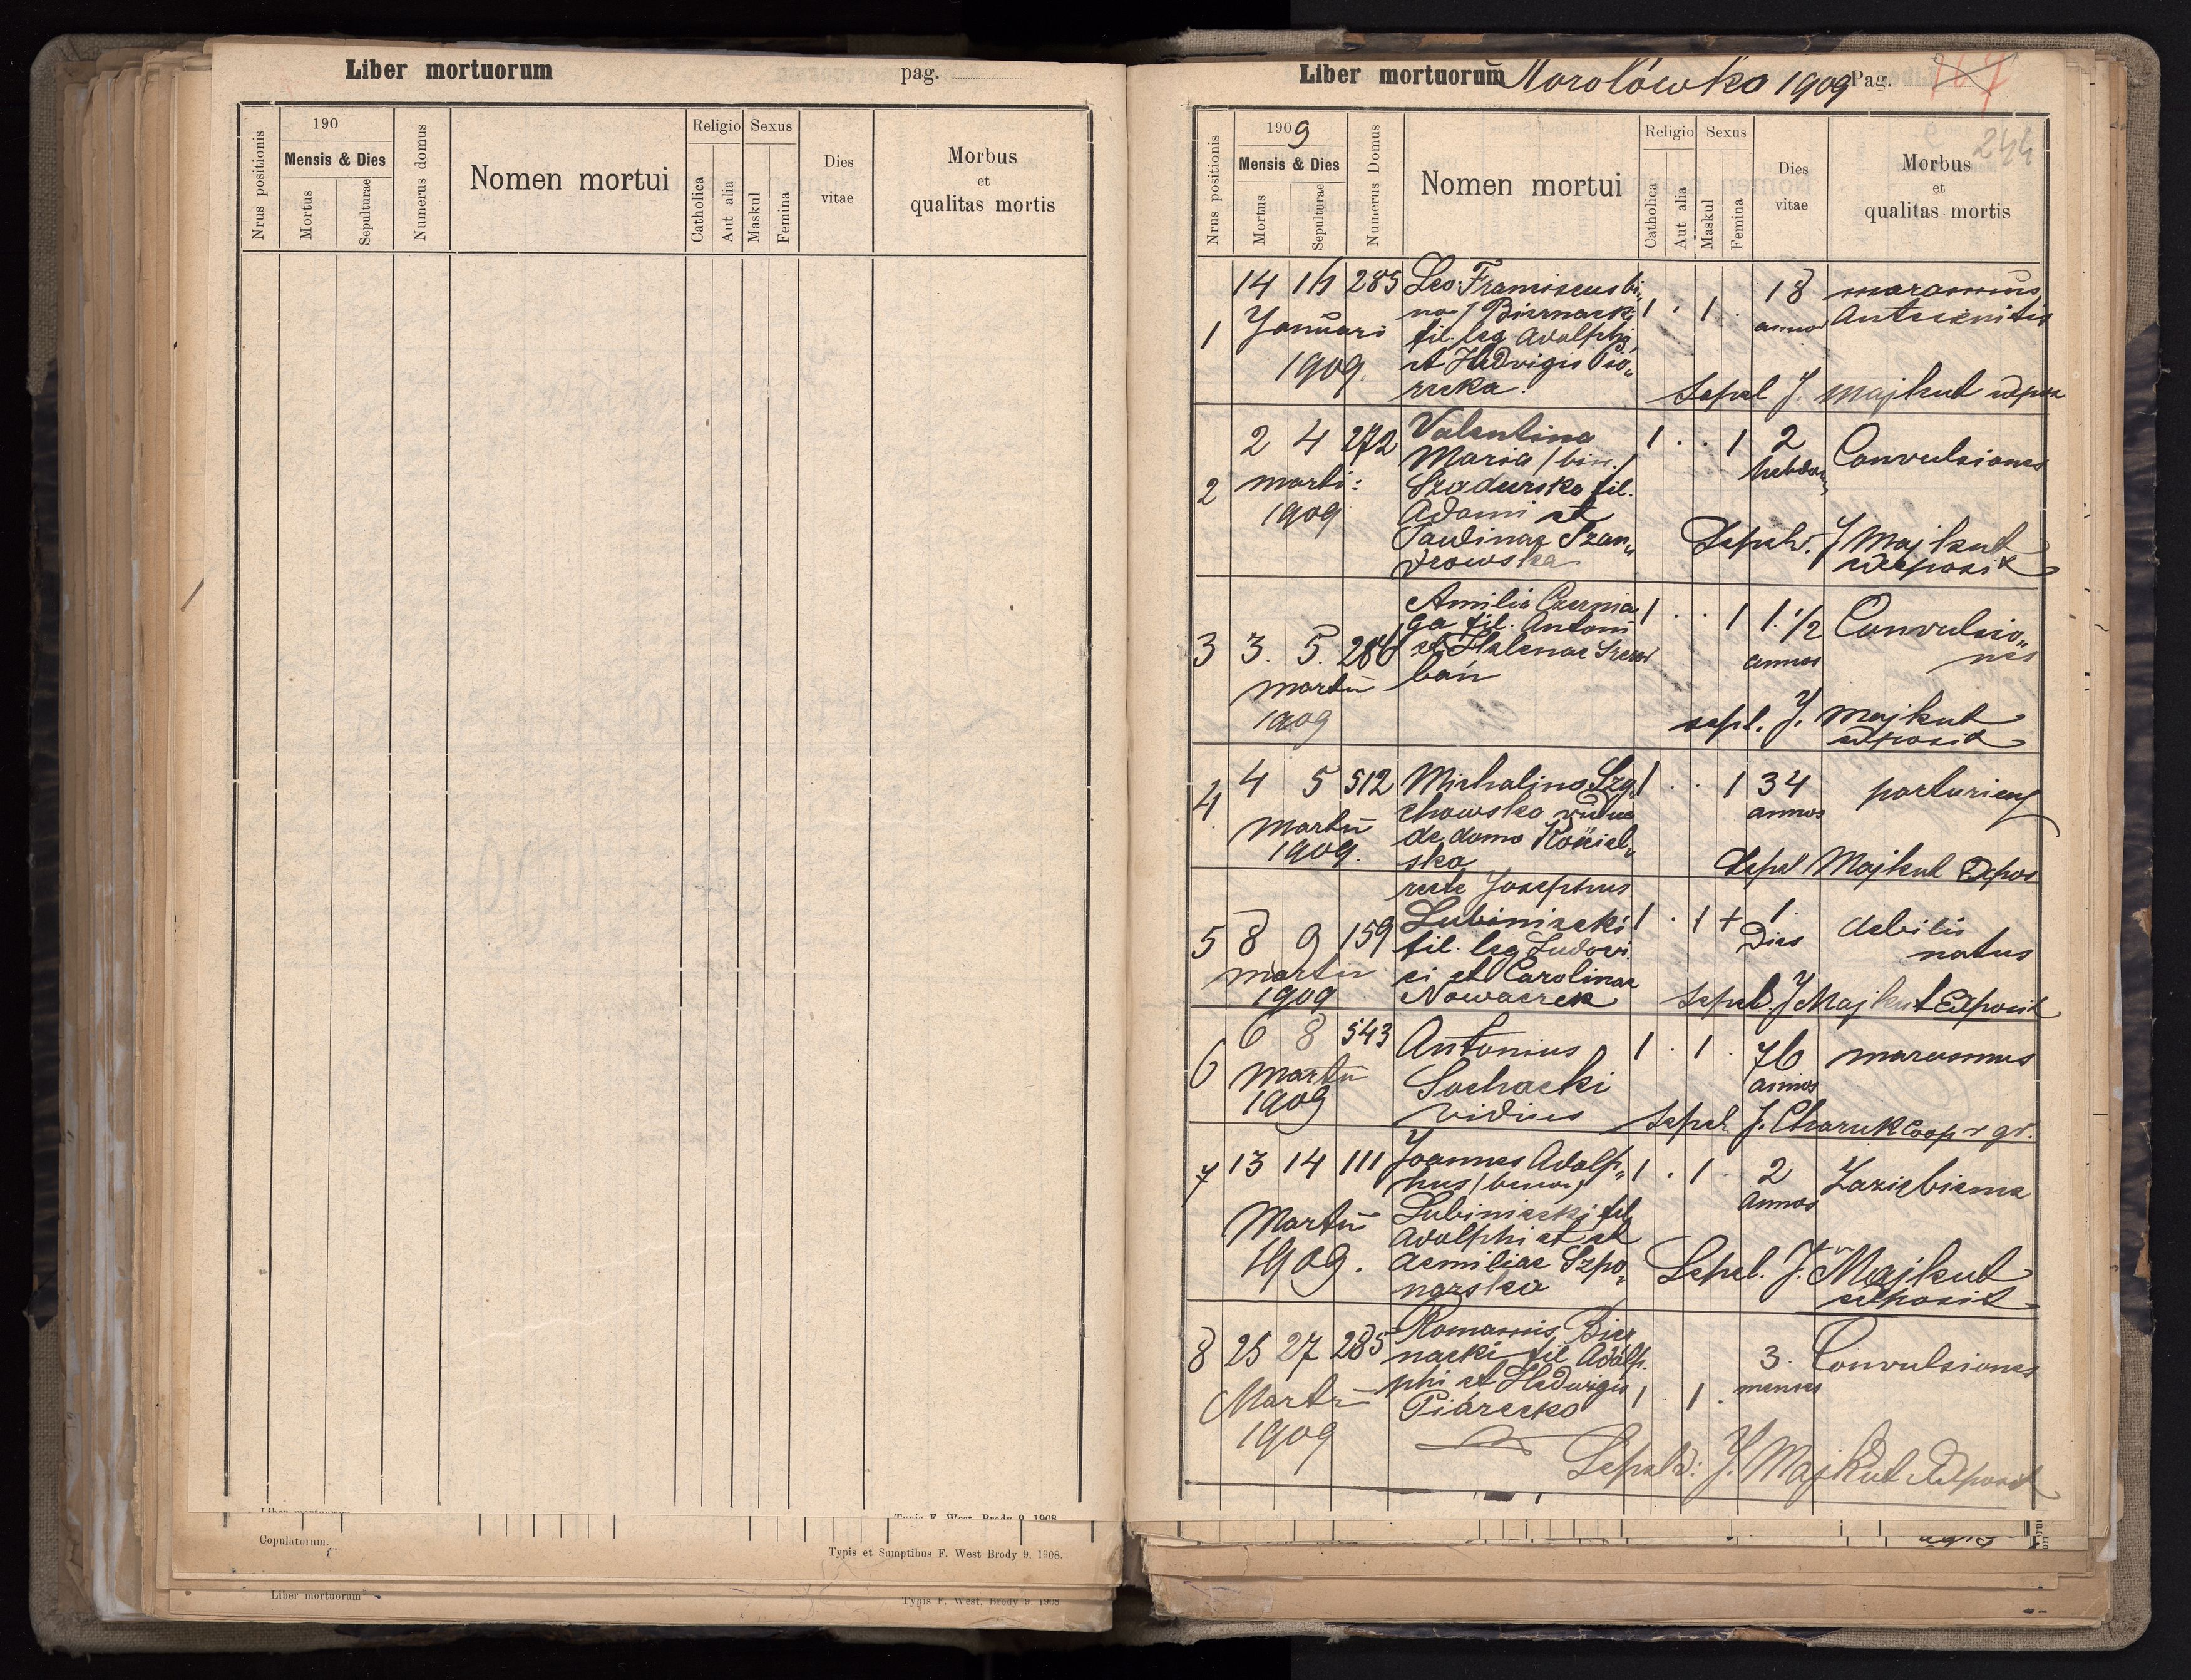 Liber mortuorum
pag.
Nrus positionis
190
Mensis & Dies
Mortus
Sepulturae
Numerus domus
Nomen mortui
Religio
Catholica
Aut alia
Sexus
Maskul
Femina
Dies
vitae
Morbus
et
qualitas mortis
Copulatorum.
Typis et Sumptibus F. West Brody 9. 1908.
Liber mortuorum
Typis F. West, Brody 9 1908
Liber mortuorum 1909 Pag. 167
244
Nrus positionis
1909
Mensis & Dies
Mortus
Sepulturae
Numerus Domus
Nomen mortui
Religio
Catholica
Aut alia
Sexus
Maskul
Femina
Dies
vitae
Morbus
et
qualitas mortis
1
14 285
Januari
1909.
Leo Franciscus bi„
no/ Biernacki
fil. leg Adolphi
et Hedvigis Pió„
recka.
1 . 1 .
18
annos
marasmus
Sepel J. Majkut
2
2 4 272
marti:
1909
Valentina
Maria / bin. /
Szadurska fil.
Adami et
Paulinae Szan„
drowska
1 . . 1
2
hebdom
Convulsiones
J Majkut
3
3. 5. 286
martii
1909
Amilia Czernia
ga fil. Antoni
et Halenae
ban
1 . . 1
1 1/2
annos
Convulsio„
nes
sepel. J. Majkut
4.
4 5 512
Martii
1909.
Michalina Szy„
chowska vidua
de domo
ska
1 . . 1
34
annos
parturiens
Sepel Majkut Expos
5
8 9 159
martii
1909
recte Josephus
Lubiniecki
fil. leg Ludovi
ci et Carolinae
Nowaczek
1 . 1 +
1.
Dies
debilis
natus
Sepel. J Majkut Exposit
6
6 8 543
Martii
1909
Antonius
Sochacki
viduus
1 . 1 .
76
annos
marasmus
Sepel J. Charuk Coop r gr.
7
13 14 111
Martii
1909.
Joannes Adolp„
hus / binom/
Lubiniecki fil
Adolphi et et
Aemiliae Szpo„
narska
1 . 1
2
Annos
Zaziebiena
Sepel. J. Majkut
exposit
8
25 27 285
Martii
1909
Romanus Bier
nacki fil Adolp.
phi et Hedwigis
Piórecko
1 . 1 .
3.
menses
Convulsiones
J. Majkut Exposit